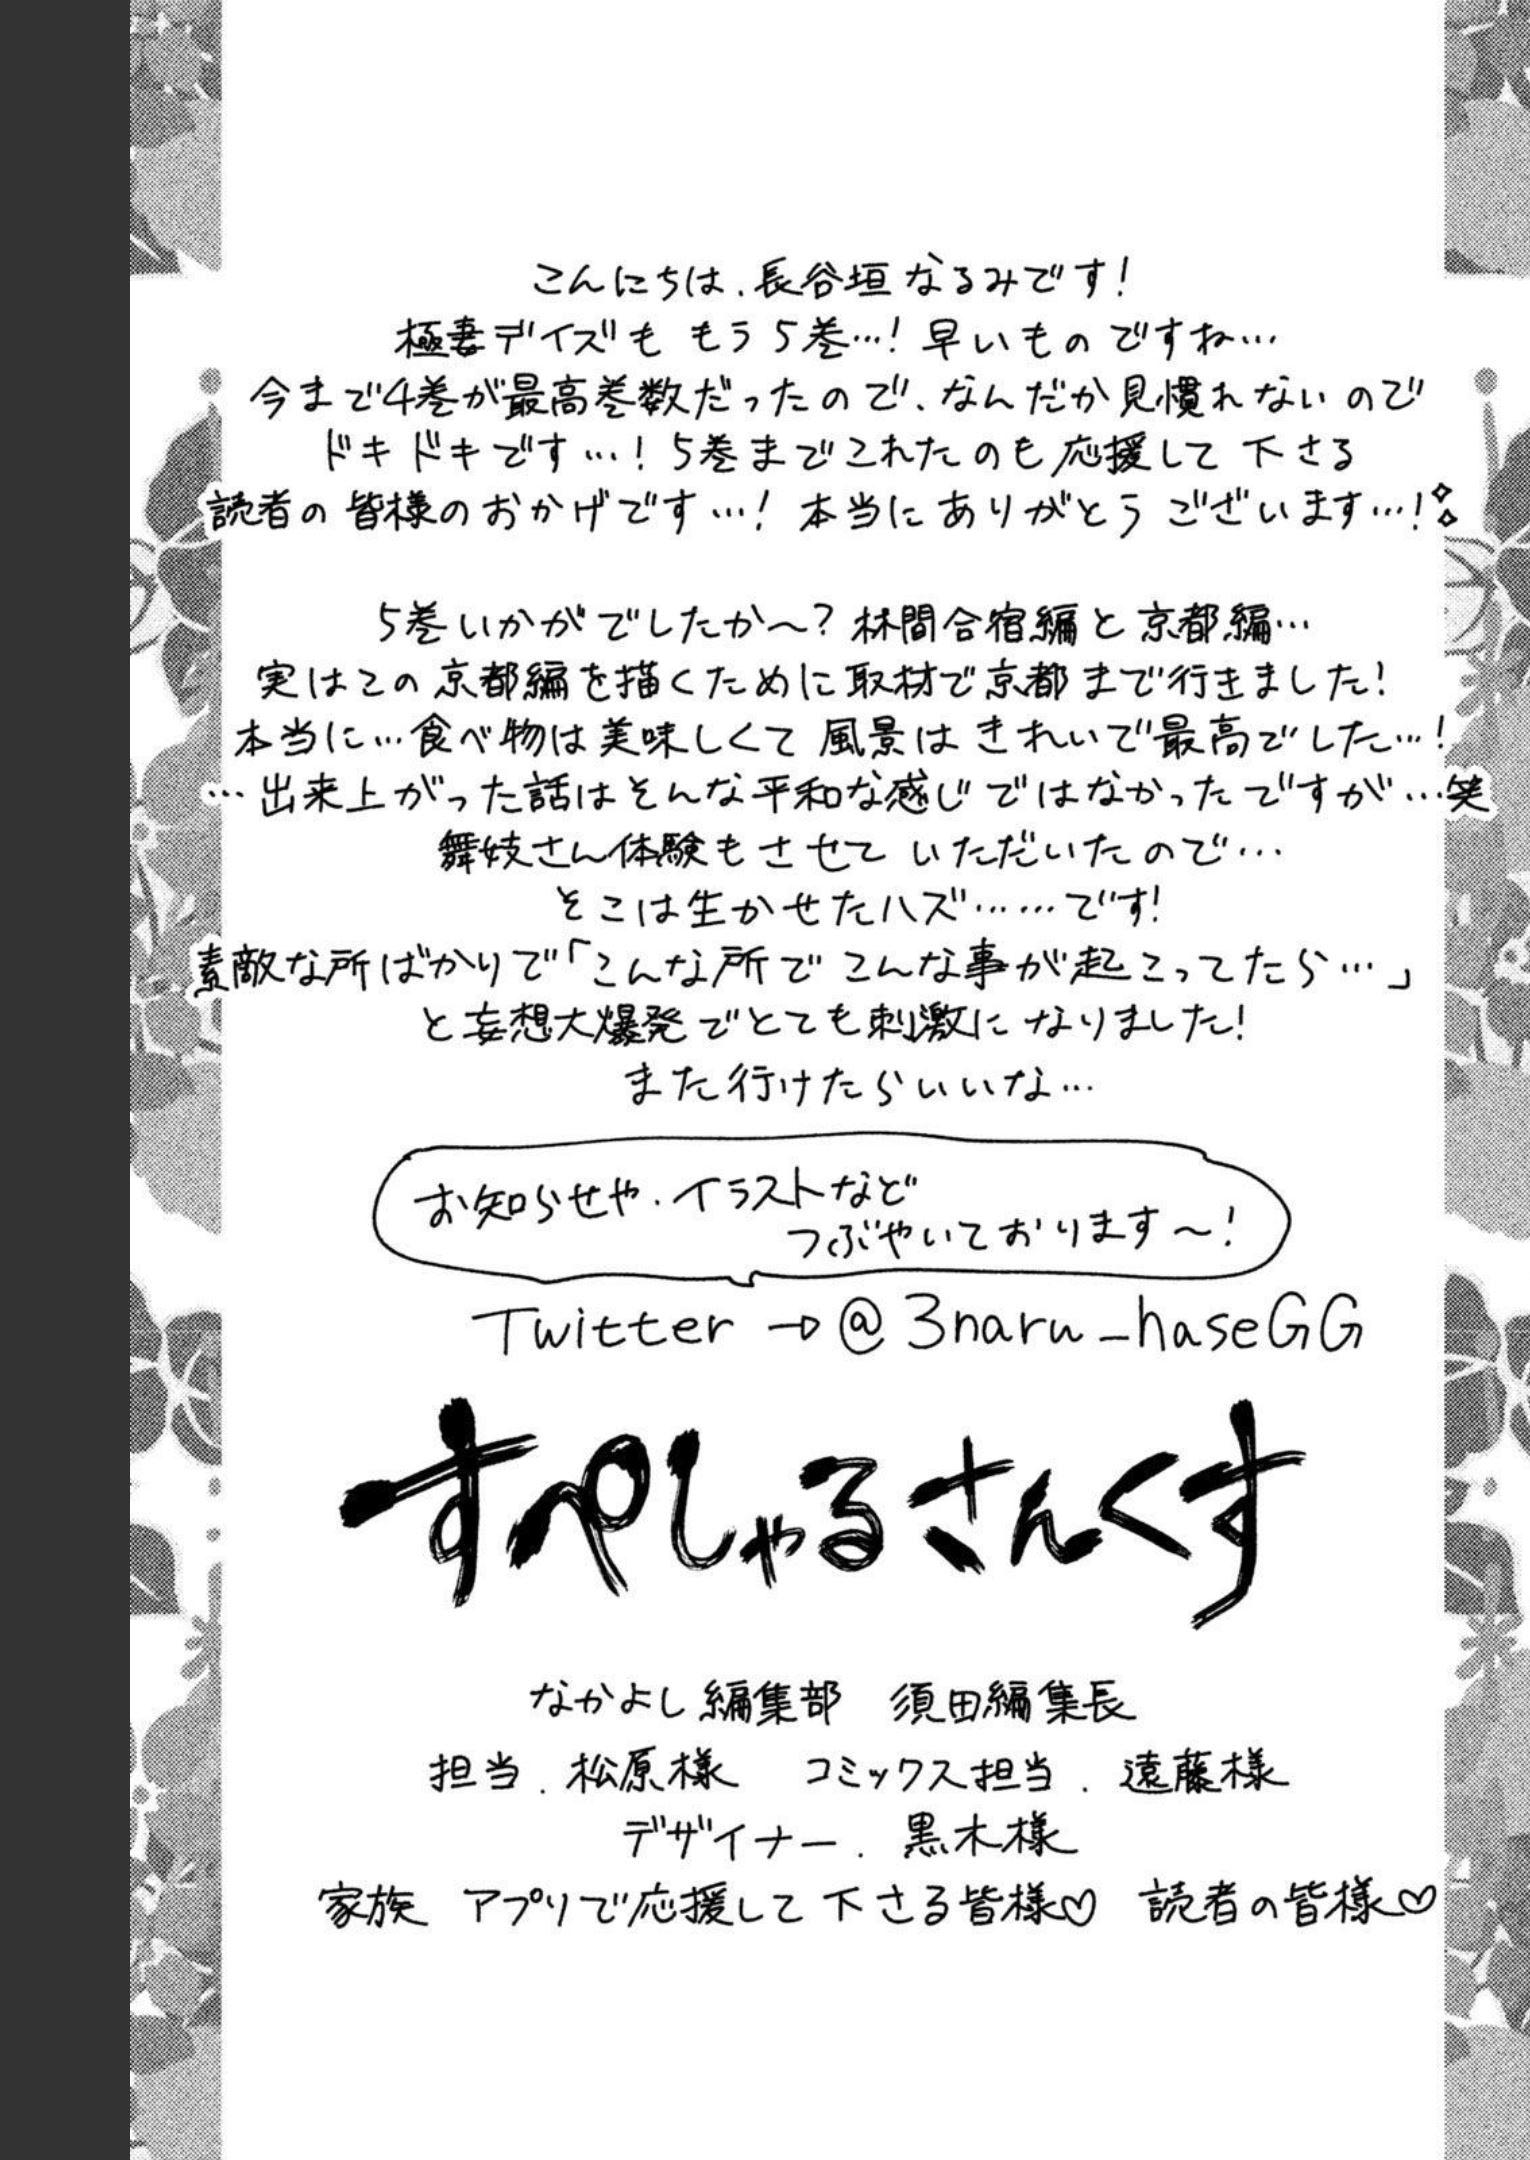 こんにちは、長谷垣なるみです!
極妻デイズも もう5巻…! 早いものですね…
今まで4巻が最高巻数だったので、なんだか見慣れないので
ドキドキです…! 5巻までこれたのも応援して下さる
読者の皆様のおかげです…! 本当にありがとうございます…!
5巻いかがでしたか〜? 林間合宿編と京都編…
実はこの京都編を描くために取材で京都まで行きました!
本当に…食べ物は美味しくて風景はきれいで最高でした…!
…出来上がった話はそんな平和な感じではなかったですが…笑
舞妓さん体験もさせていただいたので…
そこは生かせたハズ……です!
素敵な所ばかりで「こんな所でこんな事が起こってたら…」
と妄想大爆発でとても刺激になりました!
また行けたらいいな…
お知らせや、イラストなど
つぶやいております〜!
Twitter→@3naru_haseGG
すぺしゃるさんくす
なかよし編集部 須田編集長
担当、松原様 コミックス担当、遠藤様
デザイナー、黒木様
家族 アプリで応援して下さる皆様♡ 読者の皆様♡